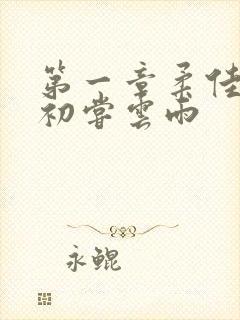 第一章柔佳
初嘗雲雨
永鲲